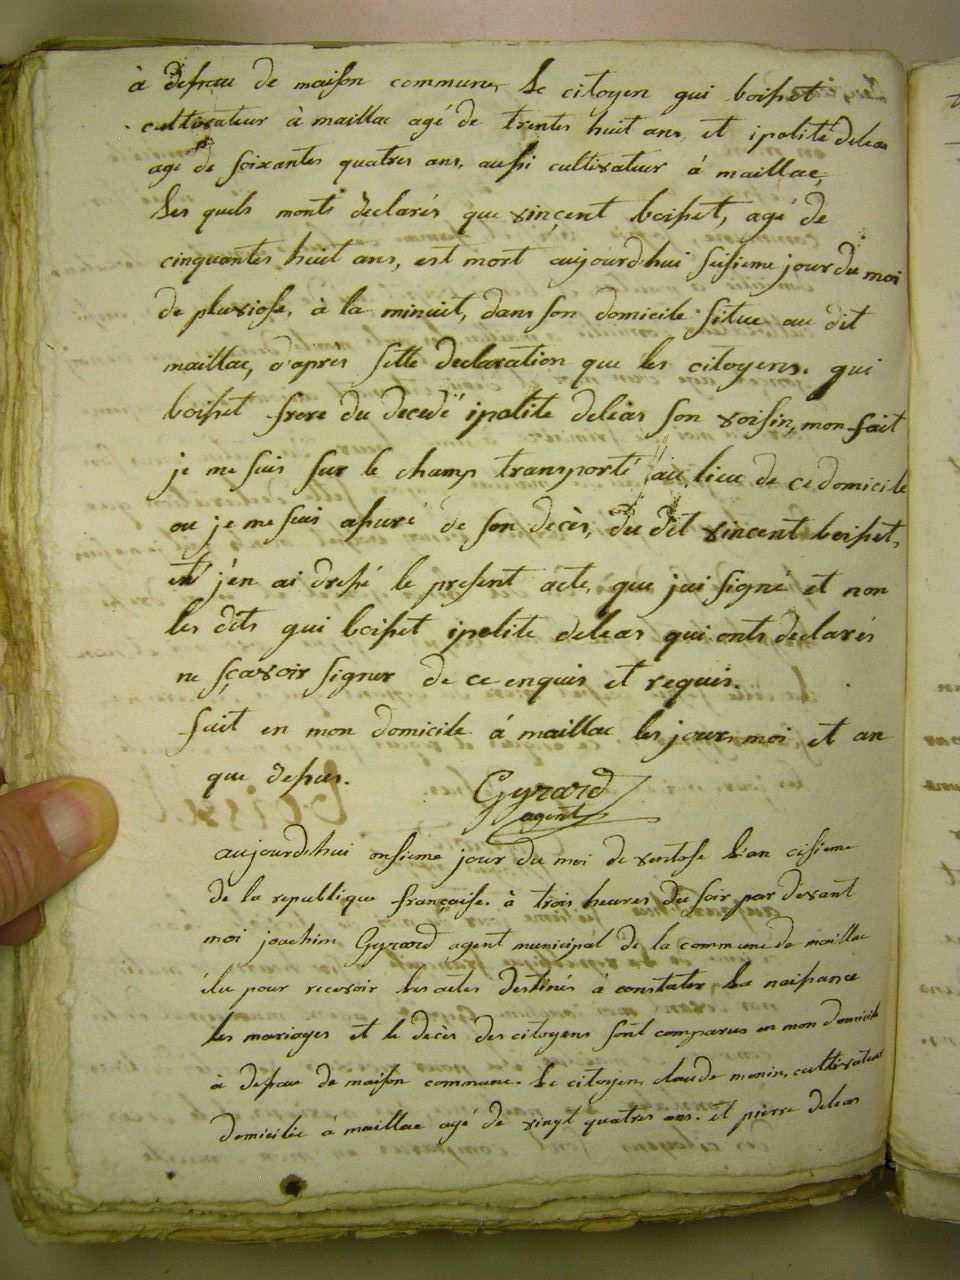 à defrau de maison commune, le citoyen gui boisset
cultivateur à maillac agé de trentes huit ans, et ipolité deleas
agé de soixantes quatres ans, aussi cultivateur à maillac,
les quels monts declarés que vincent boisset, agé de
cinquantes huit ans, est mort aujourdhui sisieme jour du moi
de pluviose, à la minuit, dans son domicile situe au dit
maillac, d'apres sette declaration que les citoyens. gui
boisset frere du decedé ipolite deleas son voisin, mon fait
je me suis sur le champ transporté au lieu de ce domicile
ou je me suis assuré de son decès, du dit vincent boisset,
et j'en ai dressé le present acte, que jai signé et non
les dits gui boisset ipolite deleas qui onts declarés
ne sçavoir signer de ce enquis et requis.
fait en mon domicile à maillac les jour, moi et an
que dessus. Gyrard
agent
aujourdhui onsieme jour du moi de ventose l'an cisieme
de la republique française. à trois heures du soir par devant
moi joachim Gyrard agent municipal de la commune de maillac
élu pour recevoir les actes destinés à constater la naissance
les mariages et le decès des citoyens sont comparus en mon domicile
à defrau de maison commune. le citoyen, claude monin, cultivateur
domicilié à maillac agé de vingt quatres ans. et pierre deleas